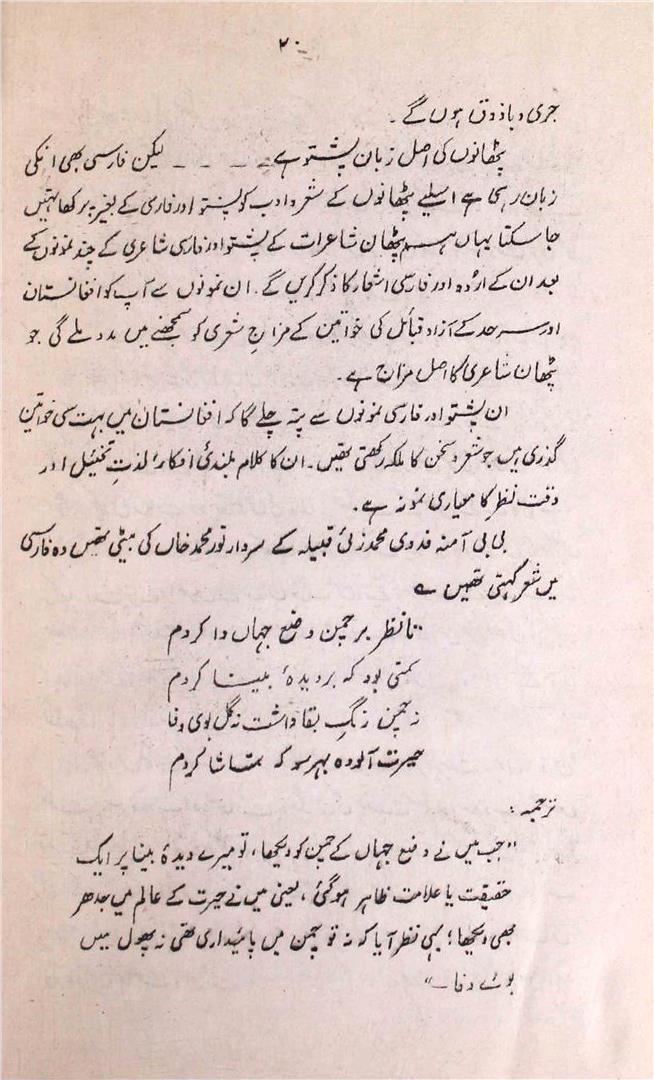 ۲۰
جری و باذوق ہوں گے۔
پٹھانوں کی اصل زبان پشتو ہے ۔ ۔ ۔ ۔ لیکن فارسی بھی انکی
زبان رہی ہے اسلیے پٹھانوں کے شعر و ادب کو پشتو اور فارسی کے بغیر پرکھا نہیں
جا سکتا یہاں ہم پٹھان شاعرات کے پشتو اور فارسی شاعری کے چند نمونوں کے
بعد ان کے اردو اور فارسی اشعار کا ذکر کریں گے۔ ان نمونوں سے آپ کو افغانستان
اور سرحد کے آزاد قبائل کی خواتین کے مزاجِ شعری کو سمجھنے میں مدد ملے گی جو
پٹھان شاعری کا اصل مزاج ہے۔
ان پشتو اور فارسی نمونوں سے پتہ چلے گا کہ افغانستان میں بہت سی خواتین
گذری ہیں جو شعر و سخن کا ملکہ رکھتی تھیں۔ ان کا کلام بلندیٔ افکار، لذتِ تخیئل اور
دقت نظر کا معیاری نمونہ ہے۔
بی بی آمنہ فدوی محمد زئی قبیلہ کے سردار نور محمد خاں کی بیٹی تھیں وہ فارسی
میں شعر کہتی تھیں ے
تا نظر بر چمن وضع جہاں وا کردم
بود کہ بر دیدۂ بینا کردم
نہ چمن رنگِ بقا داشت نہ گل بوی وفا
حیرت آلودہ بہر سو کہ تماشا کردم
ترجمہ :
"جب میں نے وضع جہاں کے چمن کو دیکھا، تو میرے دیدۂ بینا پر ایک
حقیقت یا علامت ظاہر ہو گئی، یعنی میں نے حیرت کے عالم میں جدھر
بھی دیکھا؛ یہی نظر آیا کہ نہ تو چمن میں پائیداری تھی نہ پھول میں
بوئے وفا۔"